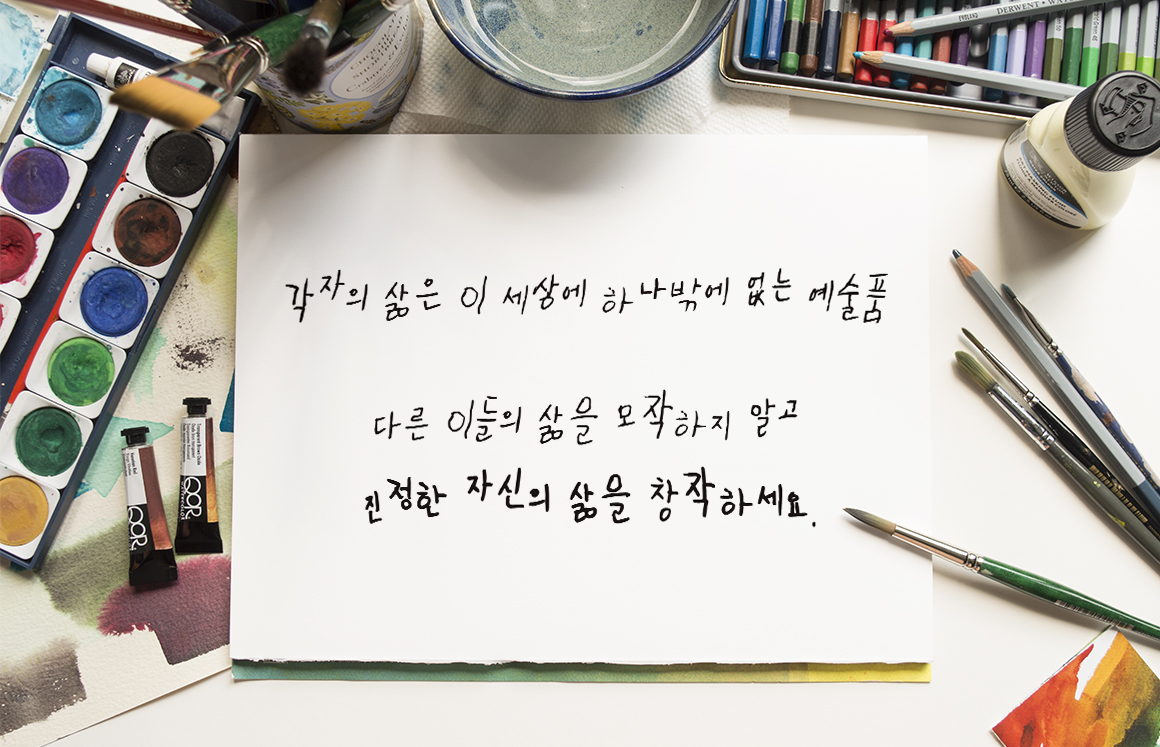 DERWENT
각자의 삶은 이 세상에 하나밖에 없는 예술품
다른 이들의 삶을 모작하지 말고
진정한 자신의 삶을 창작하세요.
Transparent Brown Oxide
QOR
QOR